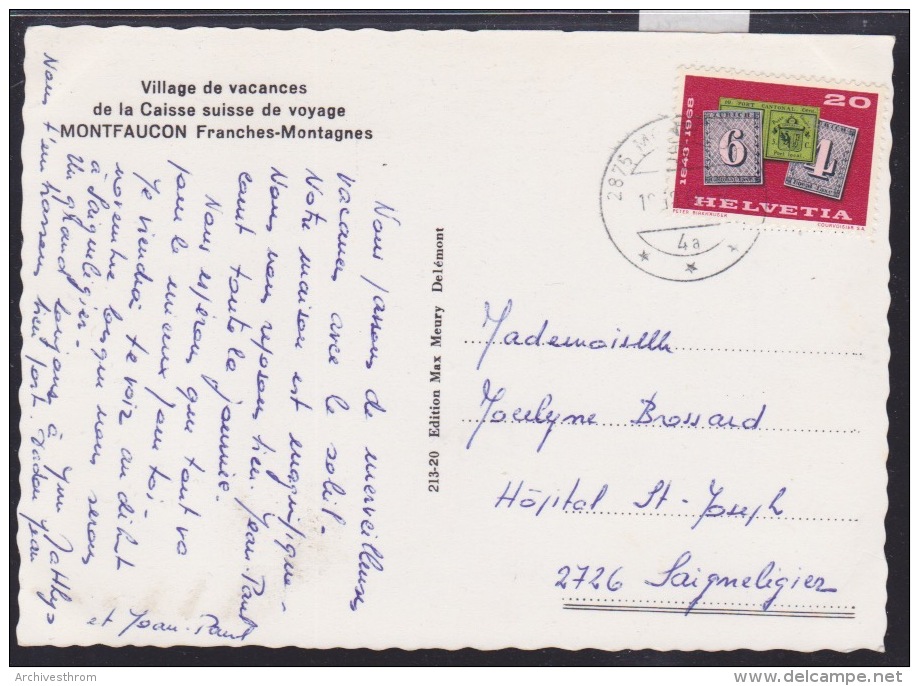 Village de vacances
de la Caisse suisse de voyage
MONTFAUCON Franches-Montagnes
Nous passons de merveilleuses
vacances avec le soleil -
Notre maison est magnifique -
Nous nous reposons bien. Jean-Paul
court toute la journée.
Nous espérons que tout va
pour le mieux pour toi -
Je viendrai te voir au début
novembre lorsque nous serons
à Saignelégier -
Un grand bonjour à
Nous t'embrassons bien fort.
et Jean-Paul
213-20 Edition Max Meury Delémont
20
1843-1968
PORT CANTONAL
Port local
6
4
HELVETIA
COURVOISIER S.A.
2875
4a
Mademoiselle
Jocelyne Brossard
Hôpital St-Joseph
2726 Saignelégier
Archivesthrom
delcampe.net